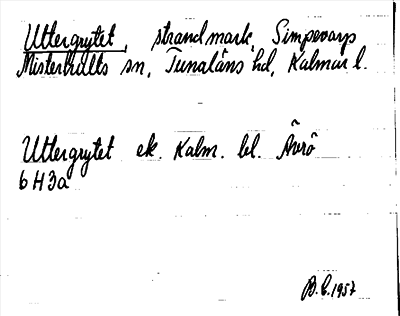 Uttergrytet, strandmark, Simpevarp
Misterhults sn, Tunaläns hd, Kalmar l.
Uttergrytet ek. Kalm. bl. Ävrö
6 H 3a
B.E. 1957